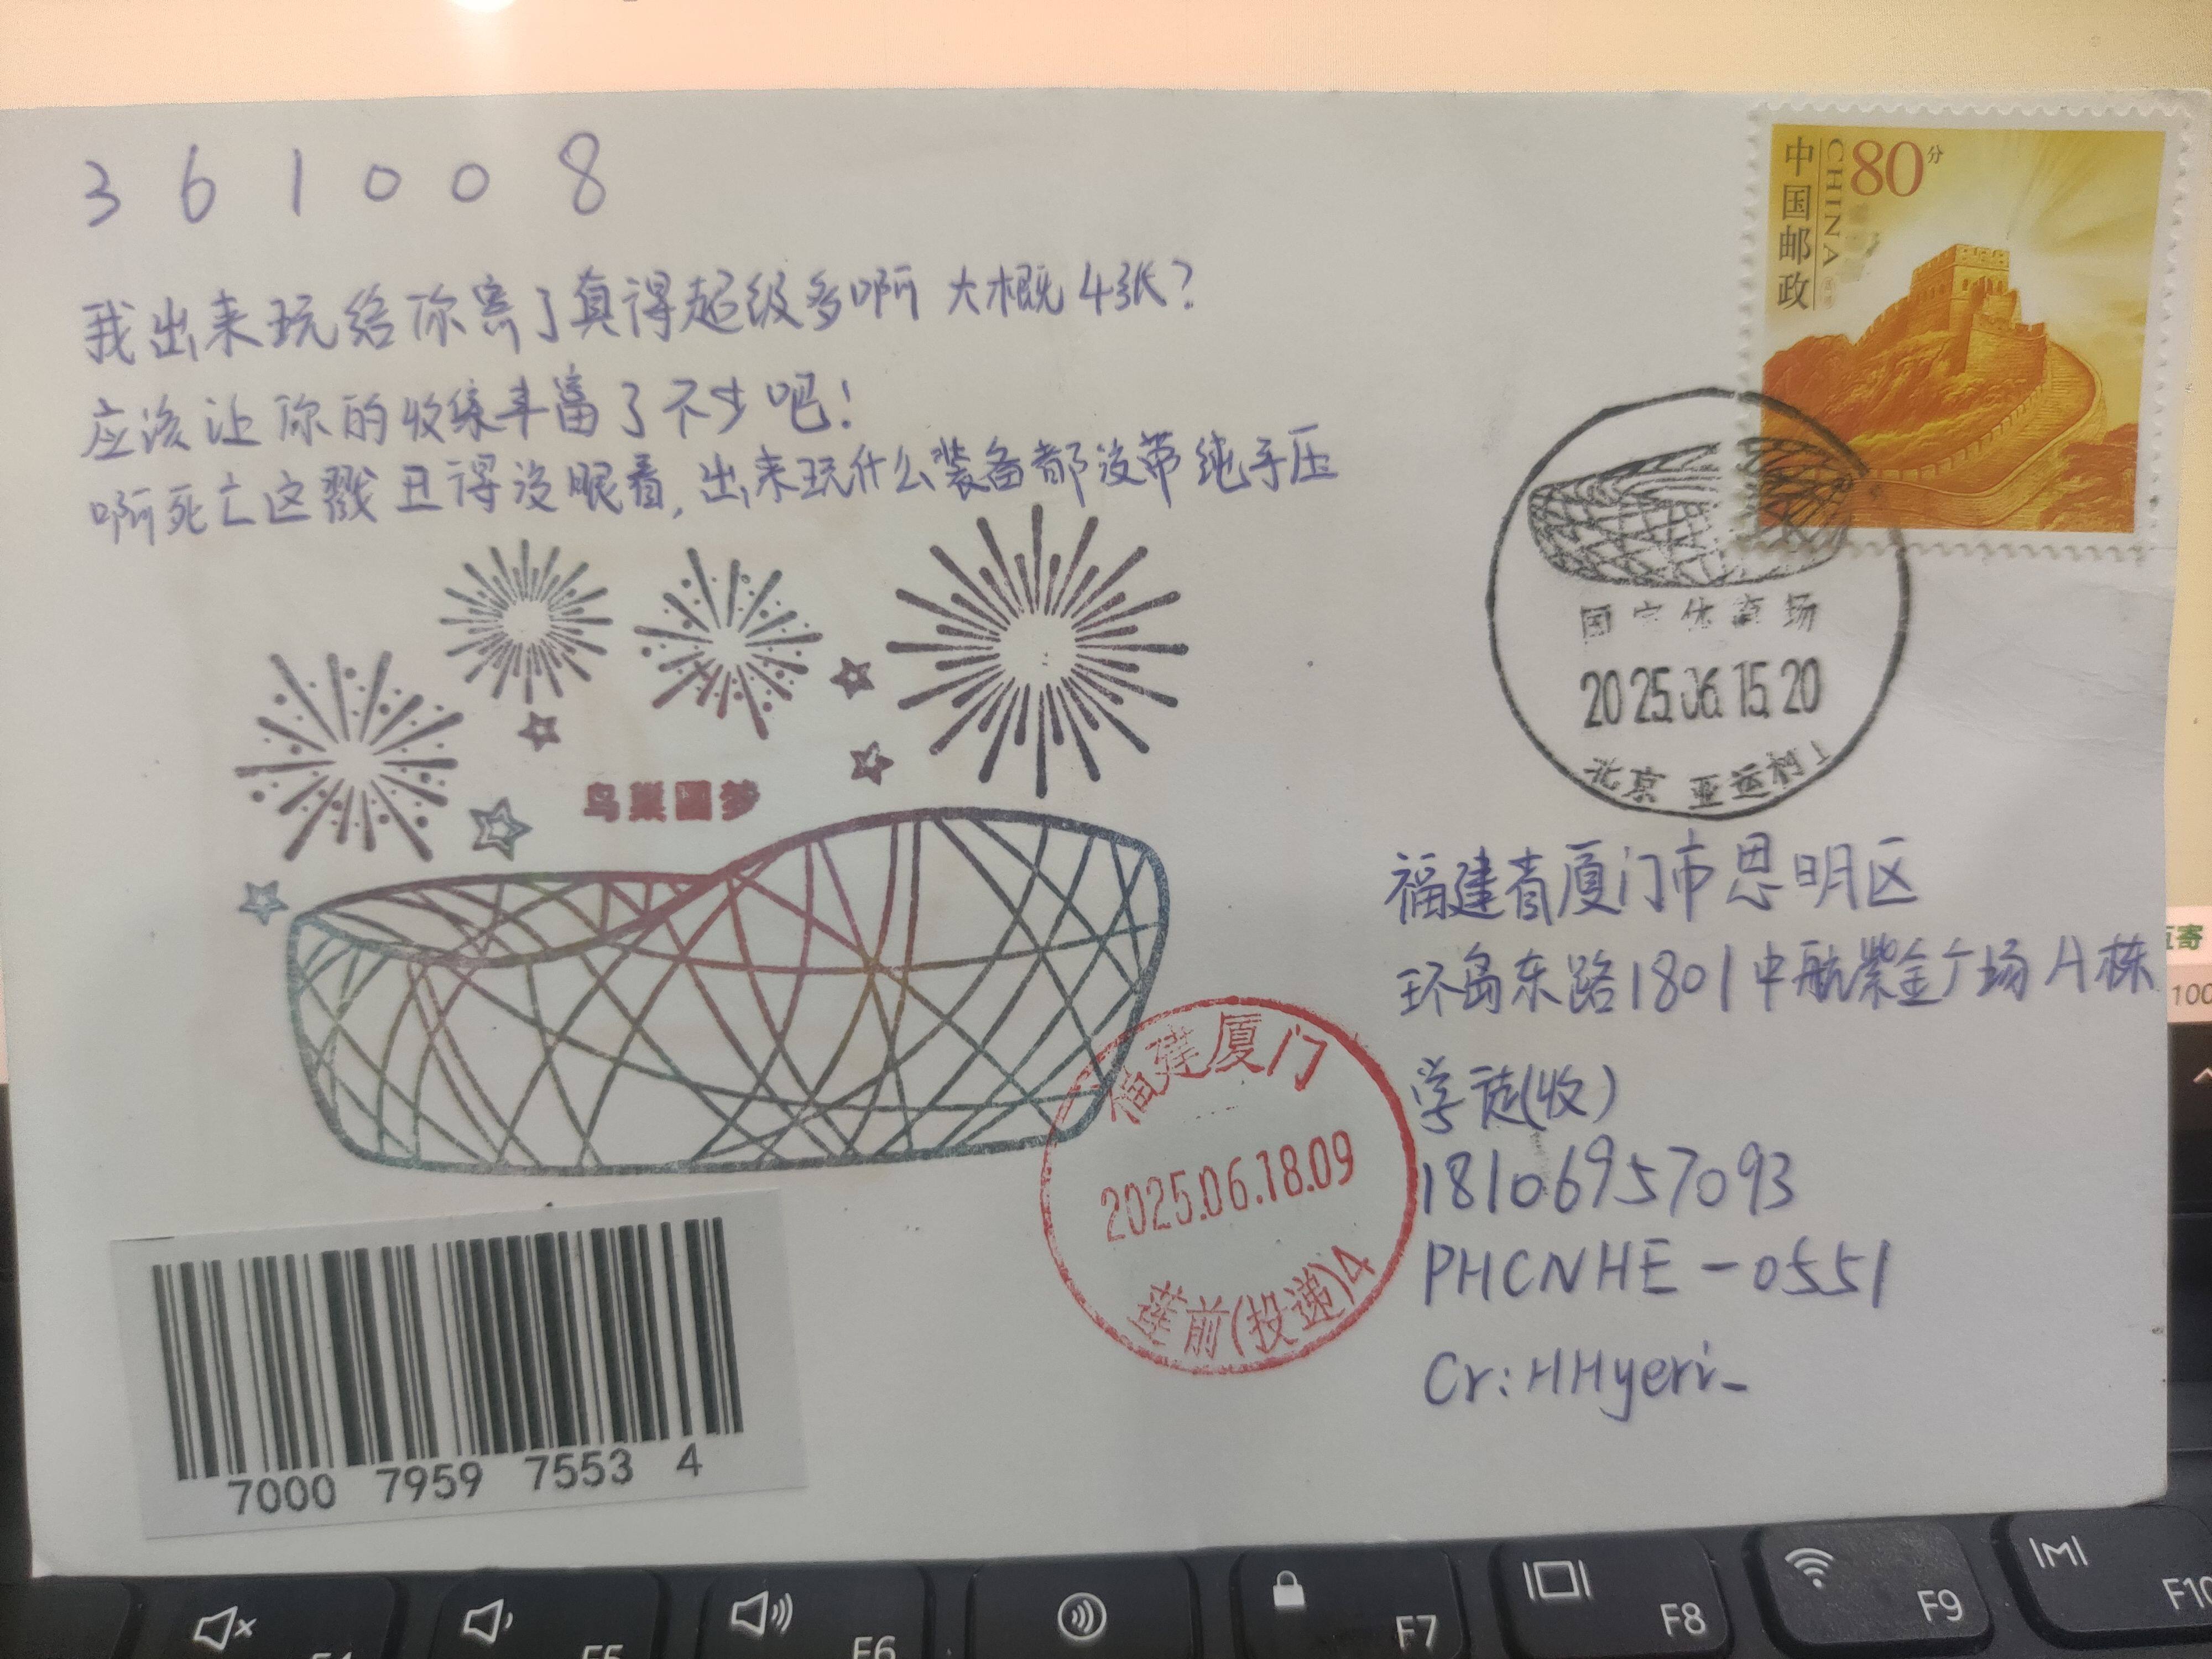 361008
中国邮政
CHINA
80分
我出来玩给你寄了真得超级多啊 大概4张?
应该让你的收集丰富了不少吧!
啊死亡这戳丑得没眼看,出来玩什么装备都没带纯手压
国家体育场
2025.06.15.20
北京 亚运村1
鸟巢圆梦
福建省厦门市思明区
环岛东路1801中航紫金广场A栋
学徒(收)
18106957093
PHCNHE-0551
Cr:HHyeri_
福建厦门
2025.06.18.09
莲前(投递)4
7000 7959 7553 4
寄
100
F5
F6
F7
F8
F9
F10